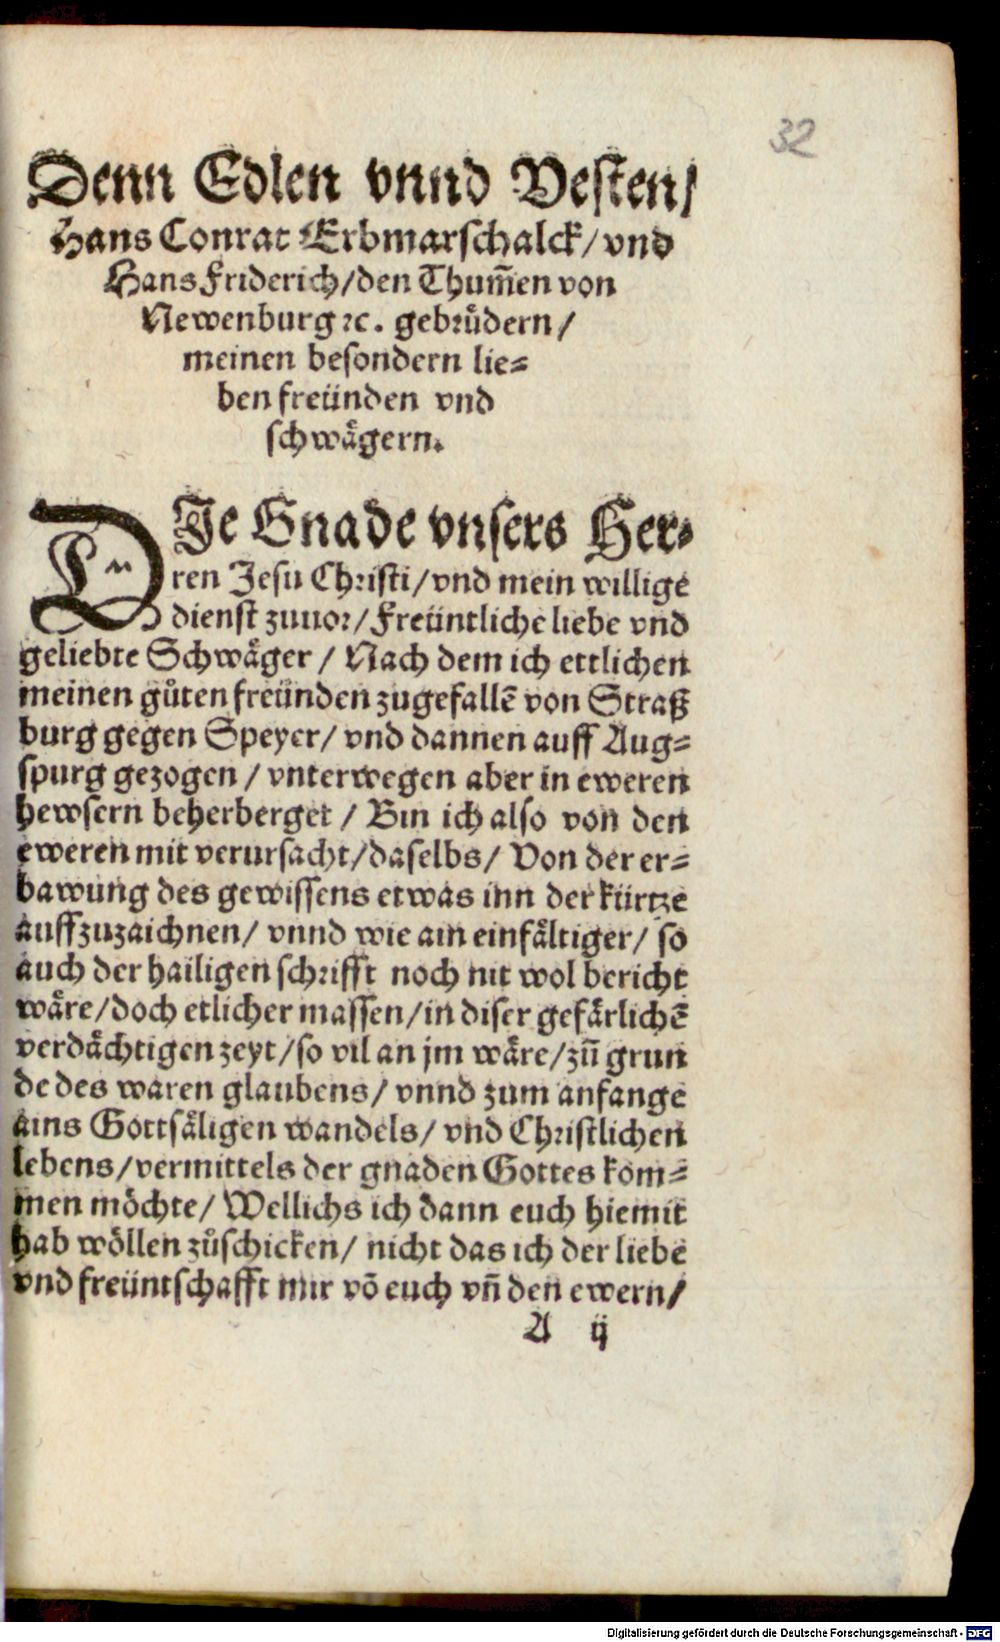 32
Denn Edlen vnnd Vesten/
Hans Conrat Erbmarschalck/ vnd
Hans Friderich/ den Thum̄en von
Newenburg ꝛc. gebꝛuͤdern/
meinen besondern lie⸗
ben freünden vnd
schwaͤgern.
DIe Gnade vnsers Her⸗
ren Jesu Chꝛisti/ vnd mein willige
dienst zuuoꝛ/ Freüntliche liebe vnd
geliebte Schwaͤger / Nach dem ich ettlichen
meinen guͦten freünden zugefallē von Straß
burg gegen Speyer/ vnd dannen auff Aug⸗
spurg gezogen / vnterwegen aber in eweren
hewsern beherberget / Bin ich also von den
eweren mit verursacht/ daselbs/ Von der er⸗
bawung des gewissens etwas inn der kürtze
auffzuzaichnen/ vnnd wie ain einfaͤltiger/ so
auch der hailigen schꝛifft noch nit wol bericht
waͤre/ doch etlicher massen/ in diser gefaͤrlichē
verdaͤchtigen zeyt/ so vil an jm waͤre/ zuͦ grun
de des waren glaubens/ vnnd zum anfange
ains Gottsaͤligen wandels/ vnd Chꝛistlichen
lebens/ vermittels der gnaden Gottes kom⸗
men moͤchte/ Wellichs ich dann euch hiemit
hab woͤllen zuͦschicken/ nicht das ich der liebe
vnd freüntschafft mir vō euch vn̄ den ewern/
A ij
Digitalisierung gefördert durch die Deutsche Forschungsgemeinschaft - DFG